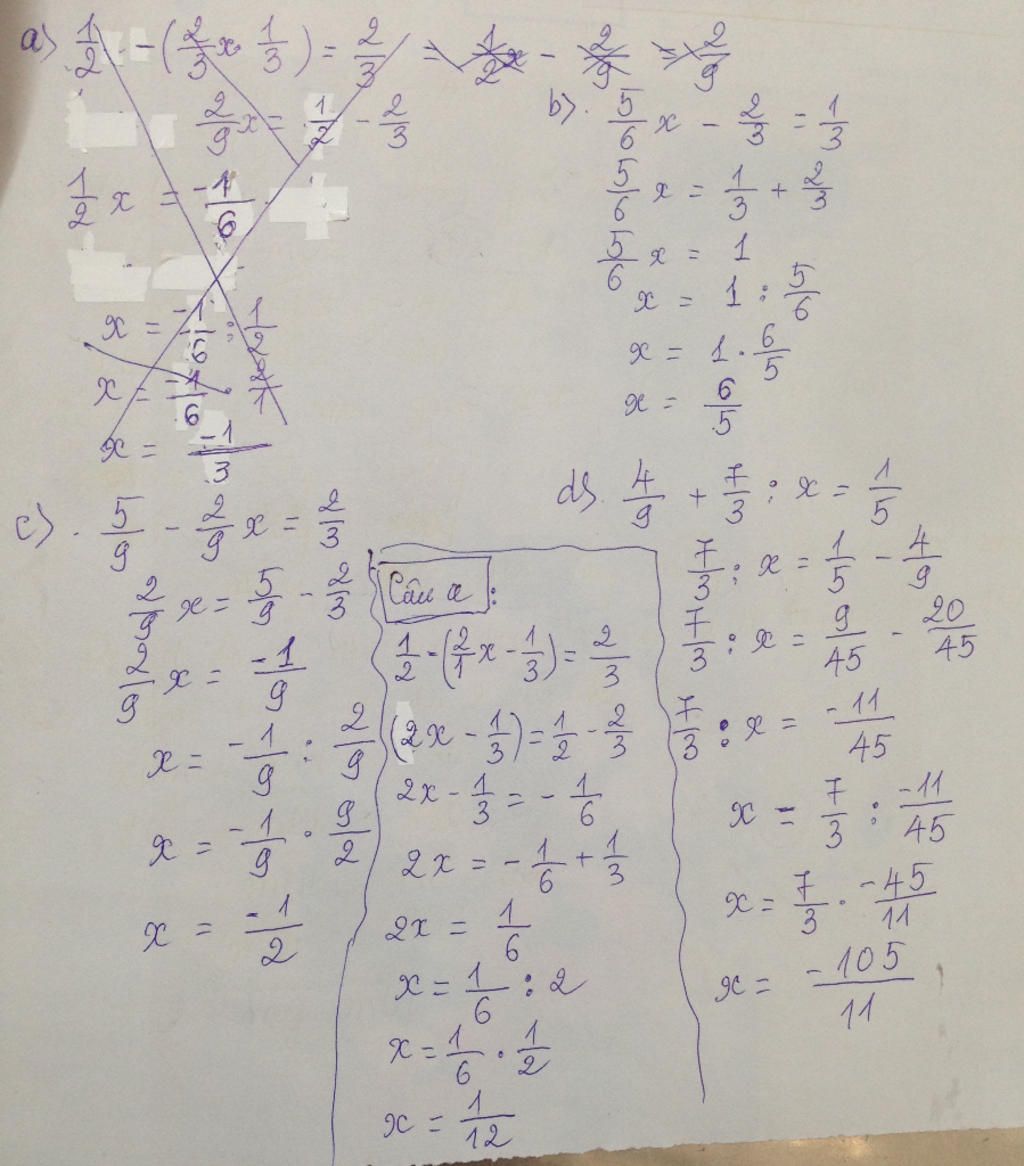 a) 1/2 - (2/3 x · 1/3) = 2/3 = 1/2 x - 2/9 = 2/9
2/9 x = 1/2 - 2/3
1/2 x = -1/6
x = -1/6 : 1/2
x = -1/6 · 2/1
x = -1/3
b) 5/6 x - 2/3 = 1/3
5/6 x = 1/3 + 2/3
5/6 x = 1
x = 1 : 5/6
x = 1 · 6/5
x = 6/5
c) 5/9 - 2/9 x = 2/3
2/9 x = 5/9 - 2/3
2/9 x = -1/9
x = -1/9 : 2/9
x = -1/9 · 9/2
x = -1/2
Câu a :
1/2 - (2/1 x - 1/3) = 2/3
(2x - 1/3) = 1/2 - 2/3
2x - 1/3 = - 1/6
2x = - 1/6 + 1/3
2x = 1/6
x = 1/6 : 2
x = 1/6 · 1/2
x = 1/12
d) 4/9 + 7/3 : x = 1/5
7/3 : x = 1/5 - 4/9
7/3 : x = 9/45 - 20/45
7/3 : x = -11/45
x = 7/3 : -11/45
x = 7/3 · -45/11
x = -105/11